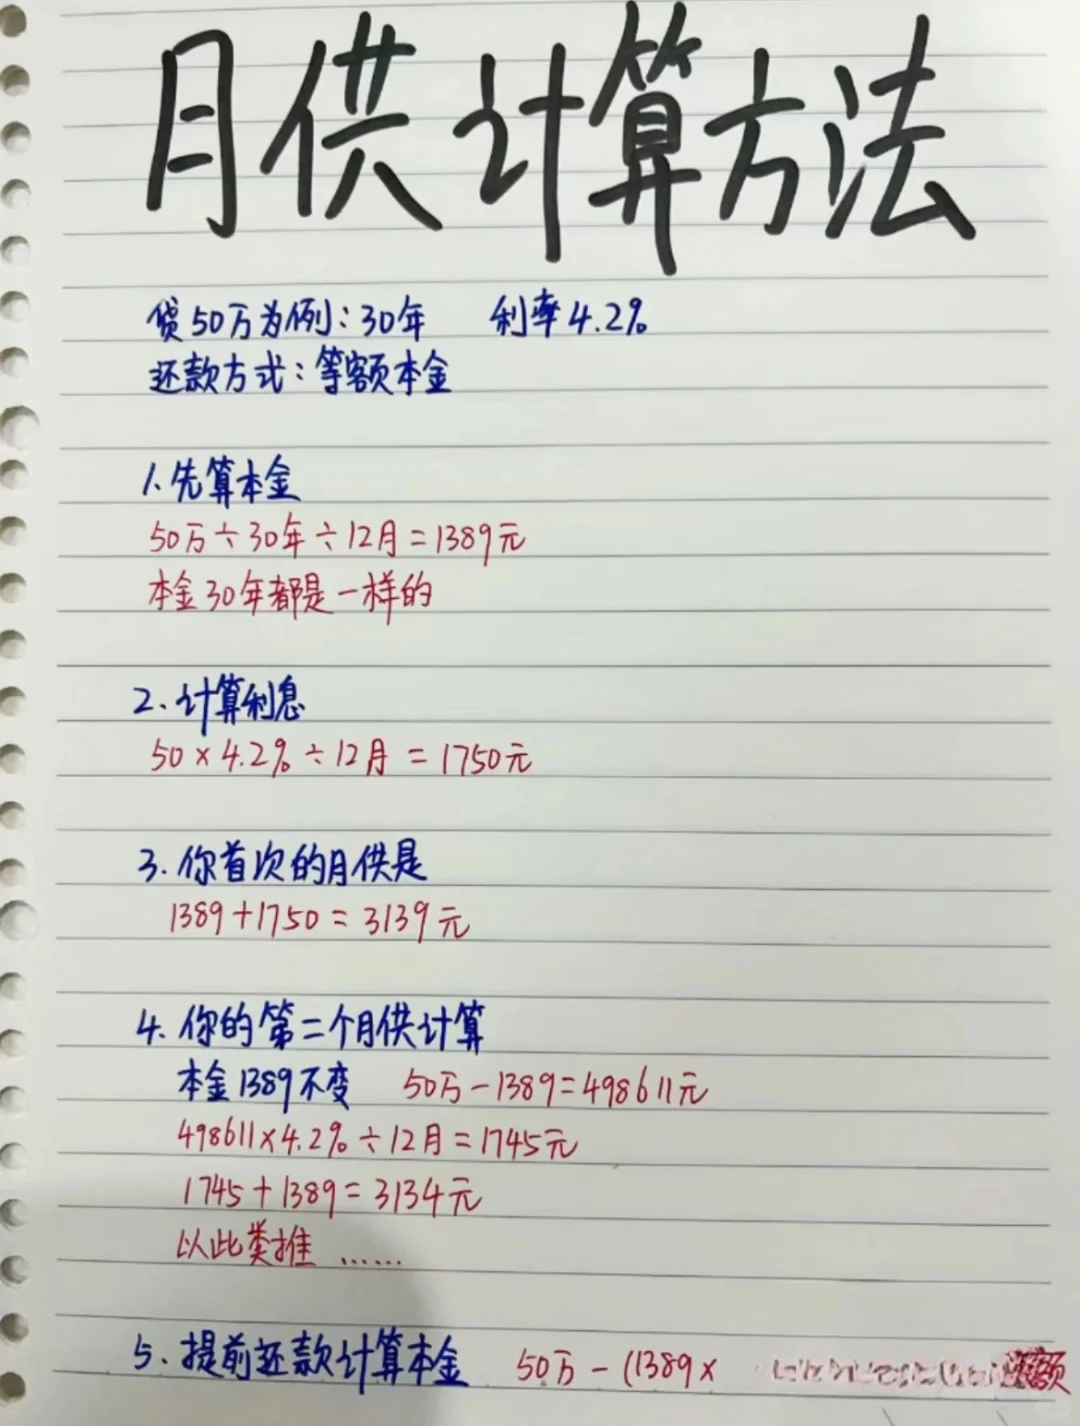 月供计算方法
贷50万为例:30年 利率4.2%
还款方式:等额本金
1.先算本金
50万÷30年÷12月=1389元
本金30年都是一样的
2.计算利息
50×4.2%÷12月=1750元
3.你首次的月供是
1389+1750=3139元
4.你的第二个月供计算
本金1389不变 50万-1389=498611元
498611×4.2%÷12月=1745元
1745+1389=3134元
以此类推……
5.提前还款计算本金 50万-(1389×